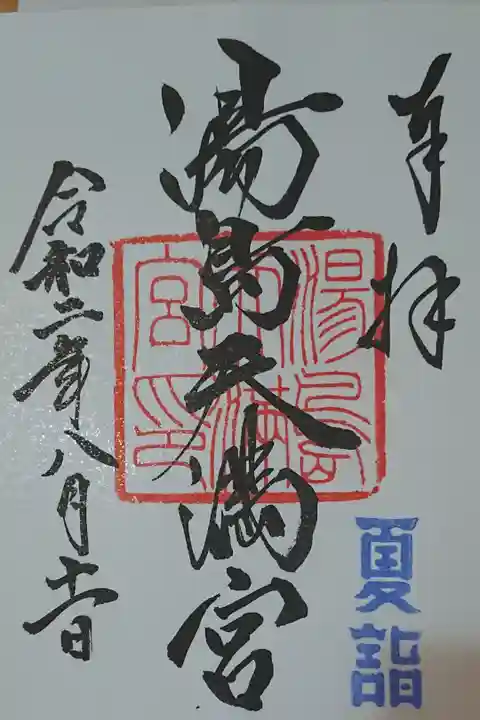 奉拝
夏詣
湯島天満宮
湯島
天満
宮印
令和二年八月十六日